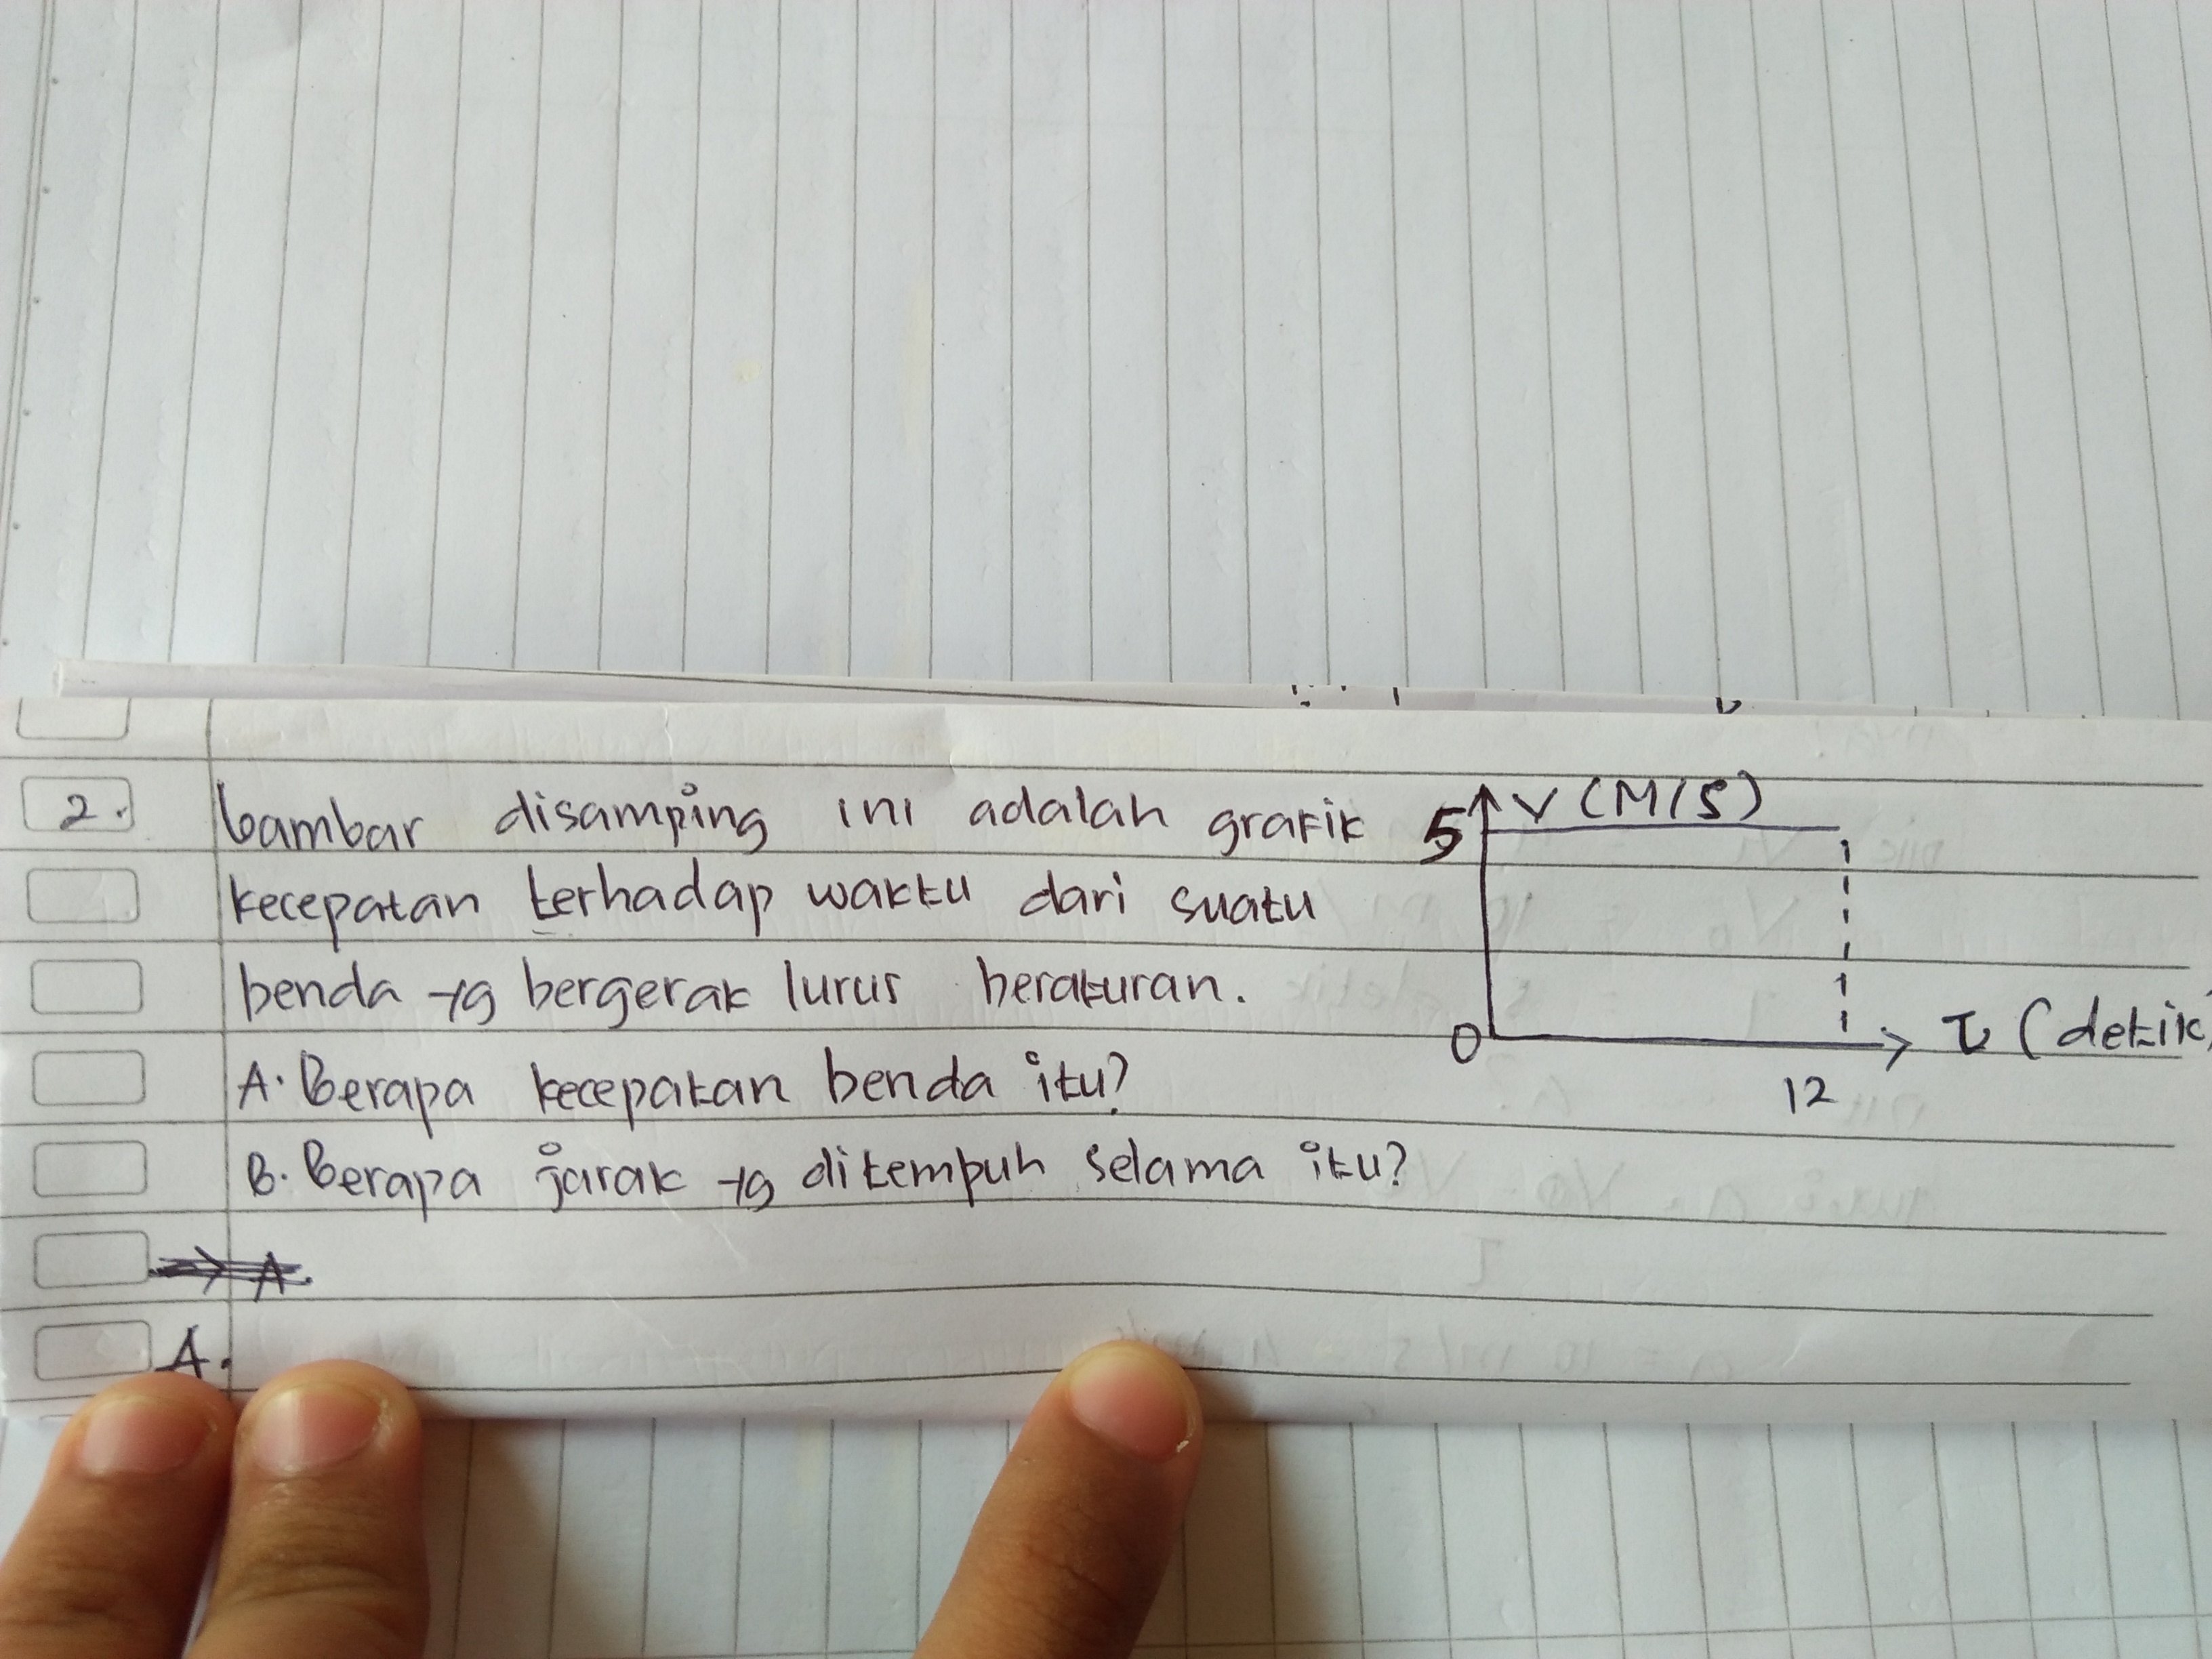 2. Gambar disamping ini adalah grafik
kecepatan terhadap waktu dari suatu
benda yg bergerak lurus beraturan.
A. Berapa kecepatan benda itu?
B. Berapa jarak yg ditempuh selama itu?
A.
A.
5 V (M/S)
0
12
t (detik)